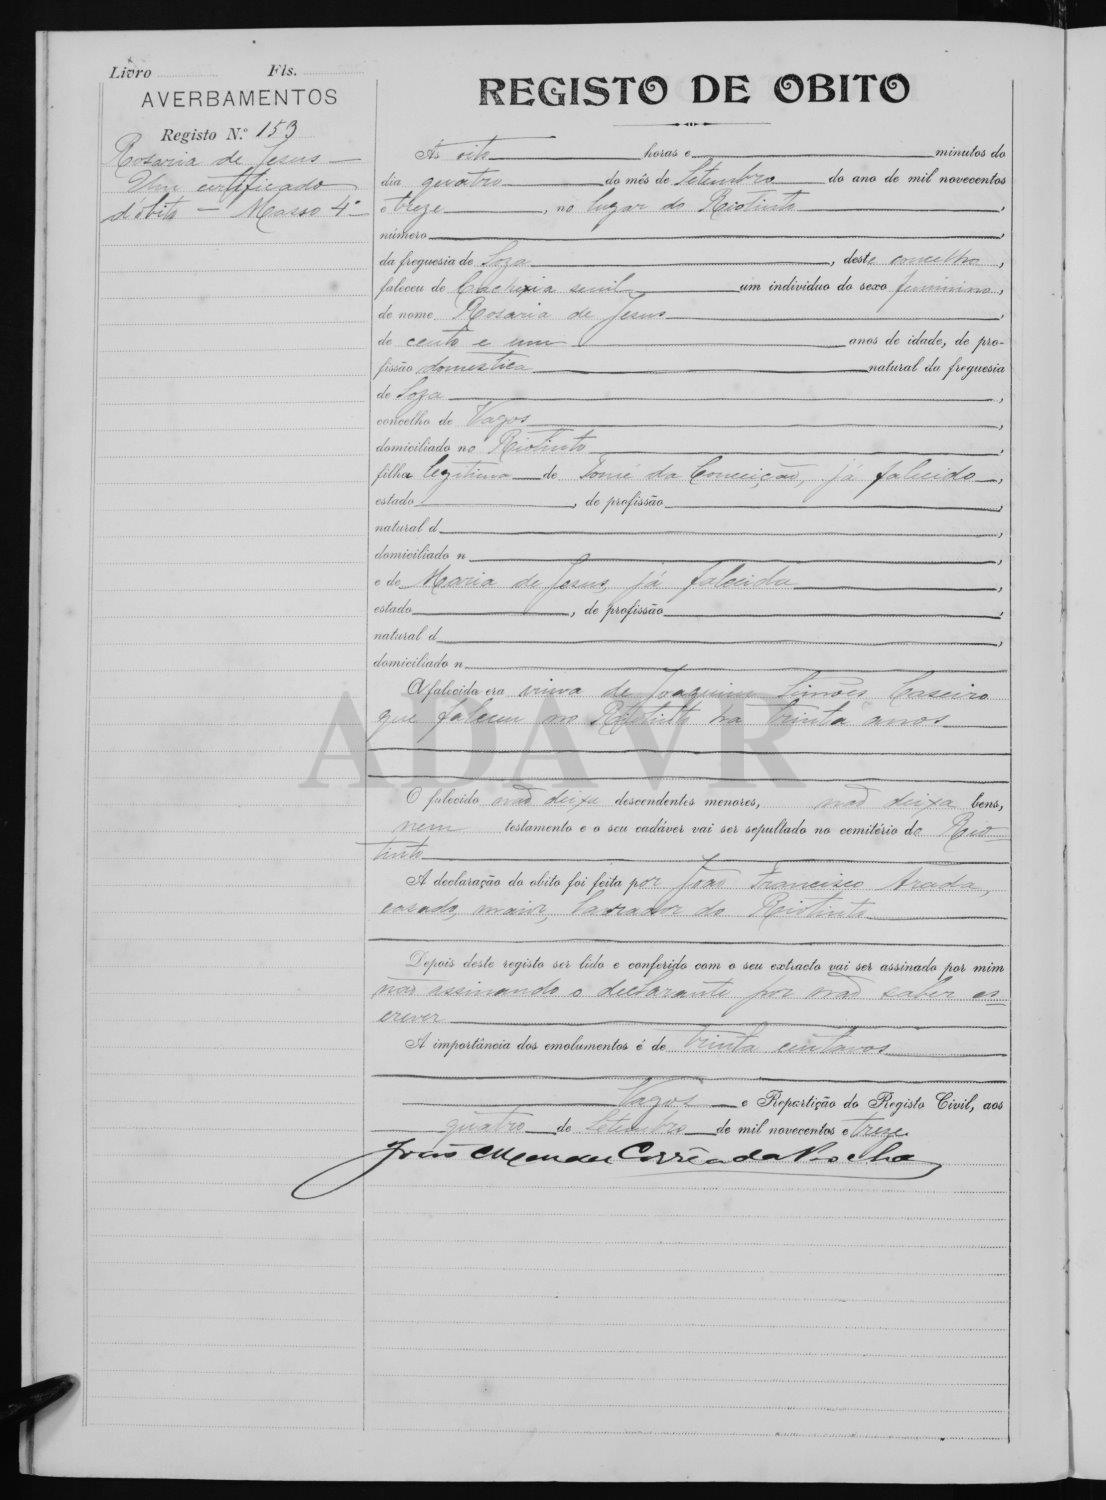 Livro Fls.
AVERBAMENTOS
Registo N.º 153
Rosaria de Jesus —
Um certificado
d'obito — Masso 4º
REGISTO DE OBITO
Ás oito horas e minutos do
dia quatro do mês de Setembro do ano de mil novecentos
e treze, no lugar do Riotinto,
número,
da freguesia de Soza, deste concelho,
faleceu de Cachexia senil um individuo do sexo feminino,
de nome Rosaria de Jesus,
de cento e um anos de idade, de pro-
fissão domestica natural da freguesia
de Soza,
concelho de Vagos,
domiciliado no Riotinto,
filha legitima de Tomé da Conceição, já falecido,
estado, de profissão,
natural d,
domiciliado n,
e de Maria de Jesus, já falecida,
estado, de profissão,
natural d,
domiciliado n
A falecida era viuva de Joaquim Simões Caseiro
que faleceu no Riotinto ha trinta anos
ADAVR
O falecido não deixa descendentes menores, não deixa bens,
nem testamento e o seu cadáver vai ser sepultado no cemitério de Rio-
tinto
A declaração do obito foi feita por João Francisco Arada,
casado, maior, lavrador do Riotinto
Depois deste registo ser lido e conferido com o seu extracto vai ser assinado por mim
não assinando o declarante por não saber es-
crever
A importância dos emolumentos é de trinta centavos
Vagos e Repartição do Registo Civil, aos
quatro de Setembro de mil novecentos e treze
João Mendes Corrêa da Rocha